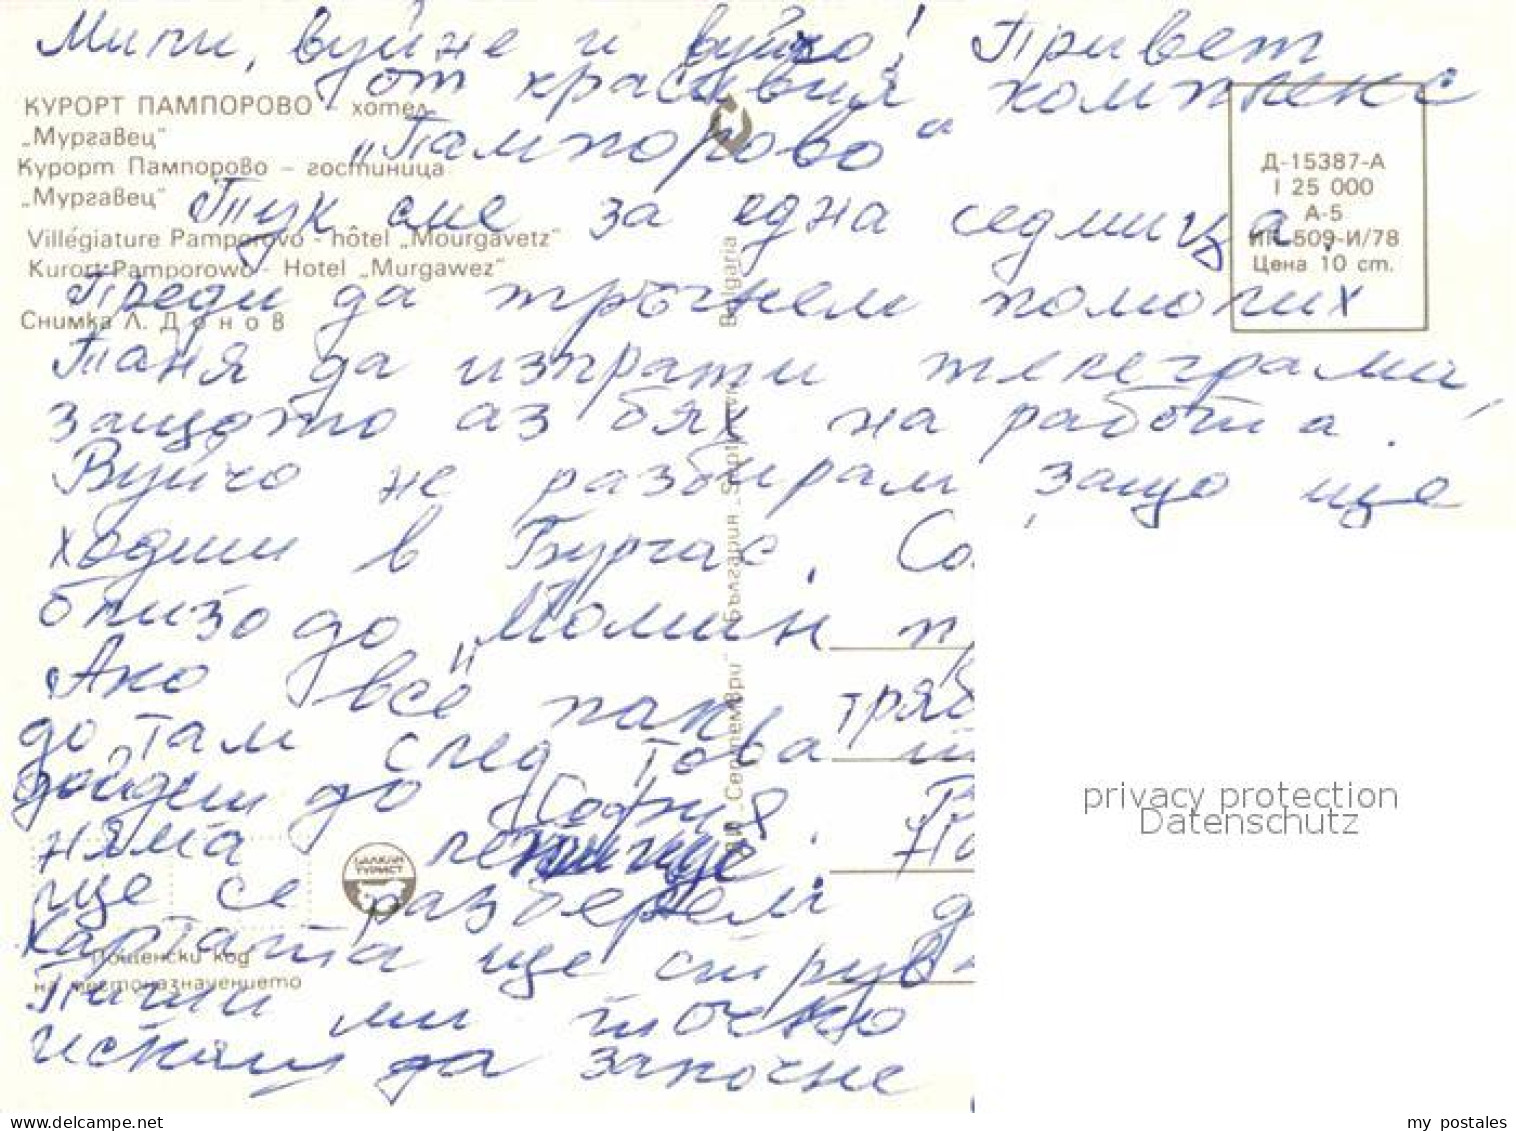 Мили, вуйне и вуйчо! Привет
от красивия комплекс
„Пампорово“
Тук сме за една седмица.
Преди да тръгнем помолих
Таня да изпрати телеграми,
защото аз бях на работа.
Вуйчо не разбирам защо ще
ходиш в Бургас. Со
близо до „Момин пр
Ако все пак тряб
до там след това
дойдеш до София. В
няма летище.
ще се разберем д
Картата ще струв
Пиши ми точно
искаш да започне
КУРОРТ ПАМПОРОВО - хотел
„Мургавец“
Курорт Пампорово – гостиница
„Мургавец“
Villégiature Pamporovo - hôtel „Mourgavetz“
Kurort Pamporowo - Hotel „Murgawez“
Снимка Л. Донов
Д-15387-А
I 25 000
А-5
ИП 509-И/78
Цена 10 ст.
ДИ „Септември“ България „Septemvri“ Bulgaria
БАЛКАН
ТУРИСТ
Пощенски код
на местоназначението
privacy protection
Datenschutz
my_postales